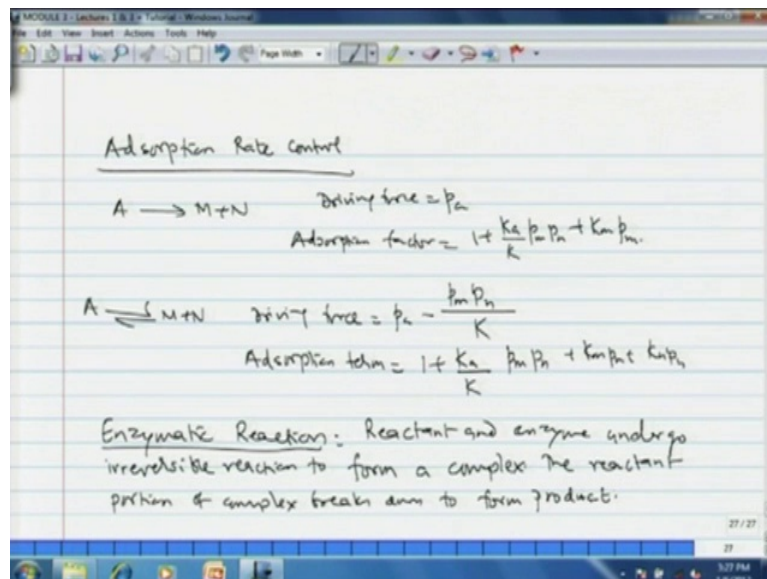 MODULE 3 - Lectures 1 & 3 + Tutorial - Windows Journal
File Edit View Insert Actions Tools Help
Page Width
Adsorption Rate Control
A → M+N Driving force = pₐ
Adsorption factor = 1 + Kₐ/K pₘ pₙ + Kₘ pₘ.
A ⇌ M+N driving force = pₐ - pₘ pₙ / K
Adsorption term = 1 + Kₐ/K pₘ pₙ + Kₘ pₘ + Kₙ pₙ
Enzymatic Reaction: Reactant and enzyme undergo
irreversible reaction to form a complex The reactant
portion of complex breaks down to form product.
27 / 27
27
5:27 PM